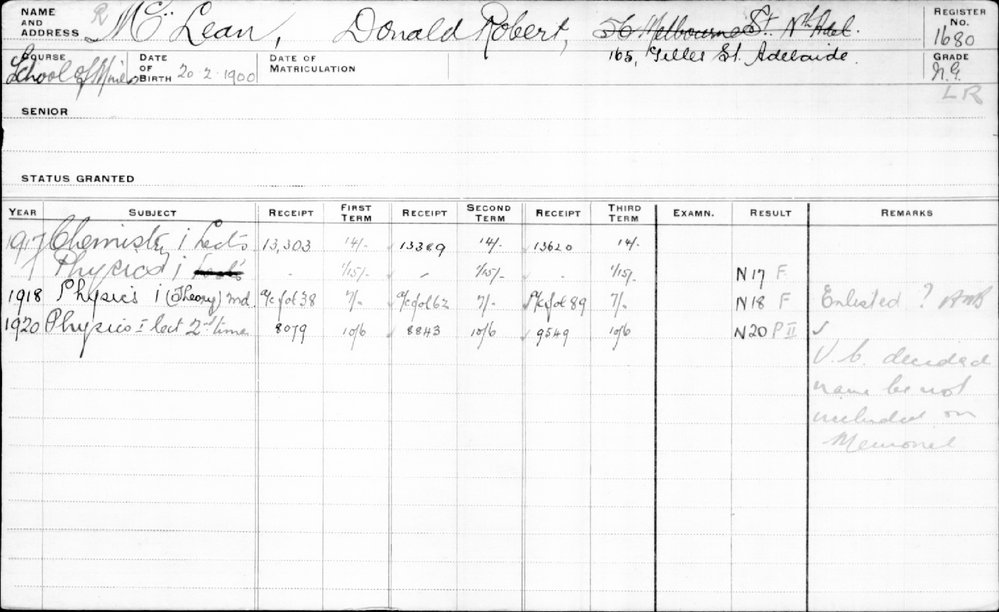 NAME AND ADDRESS R McLean, Donald Robert, 56 Melbourne St. Nth Adel. REGISTER No. 1680
165, Gilles St. Adelaide.
COURSE School of Mines DATE OF BIRTH 20.2.1900 DATE OF MATRICULATION GRADE N.G.
LR
SENIOR
STATUS GRANTED
YEAR SUBJECT RECEIPT FIRST TERM RECEIPT SECOND TERM RECEIPT THIRD TERM EXAMN. RESULT REMARKS
1917 Chemistry i Lects 13,303 14/- 13389 14/- 13620 14/-
Physics i 1/15/- 1/15/- 1/15/- N17 F
1918 Physics i (Theory) md. a/c fol 38 7/- a/c fol 62 7/- a/c fol 89 7/- N18 F Enlisted ?
1920 Physics I lect 2nd time 8079 10/6 8843 10/6 9549 10/6 N20 P II ✓
V.C. decided
name be not
included on
Memorial